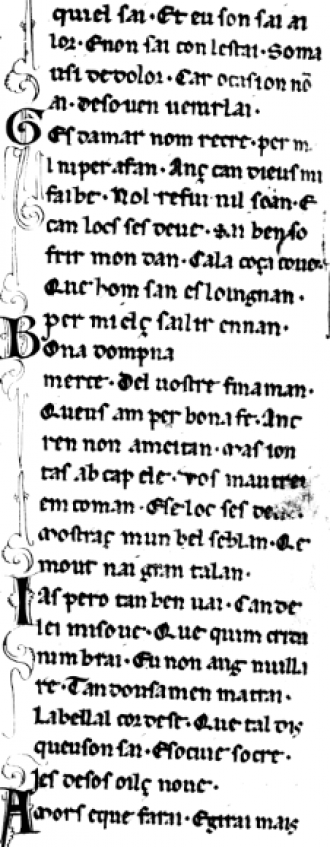 quiel sai · Et eu son sai ai
lor · Enon sai con lestai · Soma
usi de dolor · Car ocasion nõ
ai · deso uen uenir lai ·
Ges damar nom recre · per m
l ni per afan · Anç can dieus mi
fai be · Nol refui nil soan · E
can locs ses deue · An ben so
frir mon dan · Cala coça coue
Que hom san es loingnan ·
per mielç sailir ennan ·
Bona dompna
merce · Del uostre fin aman ·
Queus am per bona fe · Anc
ren non amei tan · mas ion
tas ab cap cle · Vos mautrei
em coman · Ese loc ses de
mostraç mun bel seblan · Qe
mout nai gran talan ·
Ias pero tan ben uai · Can de
lei mi soue · Que quim crida
nim brai · Eu non aug nuilla
re · Tan dousamen matrai ·
La bellal cor dest · Que tal dis
queu son sai · Eso cuie so cre ·
Jes de sos oilç no ue ·
Amors e que farai · Egirai mais